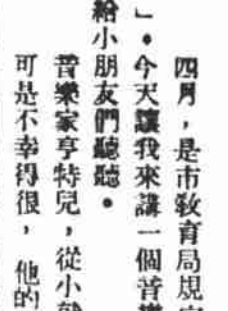 四月，是市敎育局規定
」。今天讓我來講一個音樂
給小朋友們聽聽。
音樂家亨特兒，從小就
可是不幸得很，他的